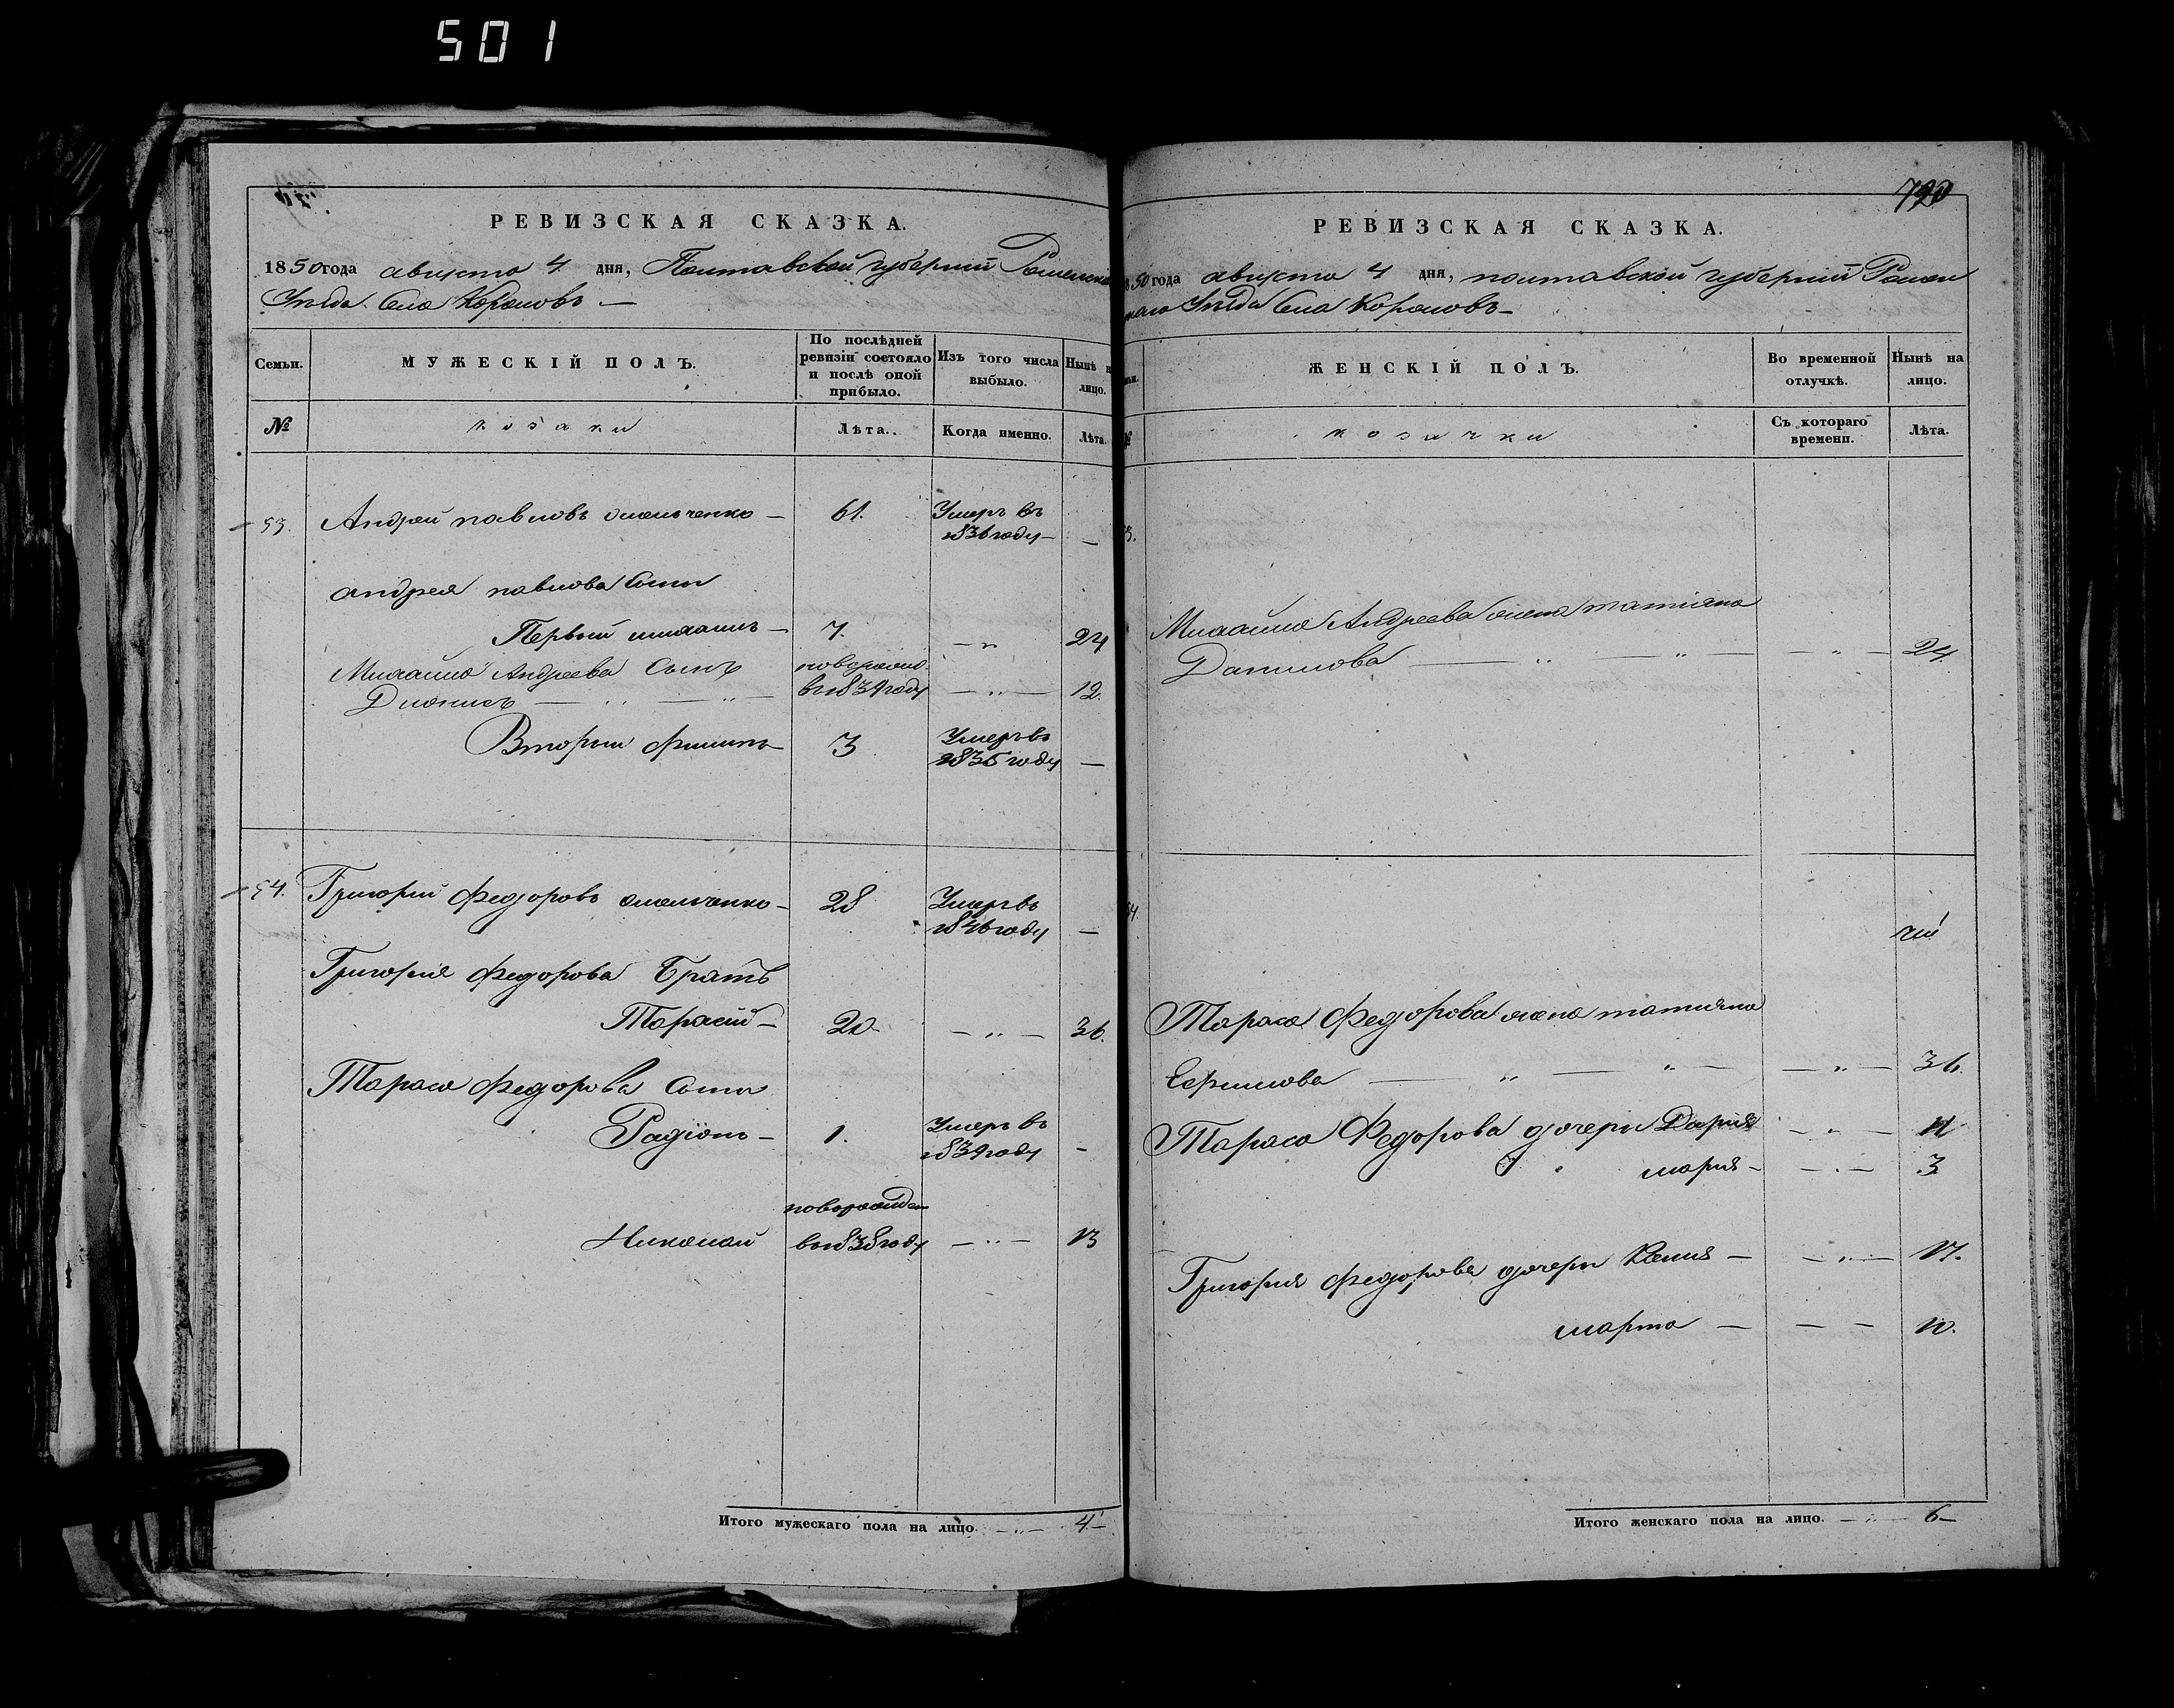 501
РЕВИЗСКАЯ СКАЗКА.
1850 года августа 4 дня, Полтавской губернии Роменска
Уѣзда Села Корововъ —
Семьи.
МУЖЕСКІЙ ПОЛЪ.
По послѣдней ревизіи состояло и послѣ оной прибыло.
Изъ того числа выбыло.
Нынѣ н лицо.
№
козаки
Лѣта.
Когда именно.
Лѣта.
53. Андрей павловъ омельченко — 61. Умеръ въ
1836 году — —
андрея павлова Сыны
Первый михаилъ — 7. — „ 24
Михаила Андреева Сынъ новорожд.
Дионисъ — „ — „ — въ 1839 году — „ — 12.
Вторый филипъ 3 Умеръ въ
1835 году —
54. Григорій федоровъ омельченко — 28 Умеръ въ
1846 году —
Григорія федорова Братъ
Тарасій — 20 — „ — 36.
Тараса федорова Сыны
Радіонъ — 1. Умеръ въ
1839 году —
новорожден
Николай въ 1838 году — „ — 13
Итого мужескаго пола на лицо. — „ — 4 —
790
РЕВИЗСКАЯ СКАЗКА.
50 года августа 4 дня, полтавской губерніи Ромен
скаго Уѣзда Села Корововъ —
ЖЕНСКІЙ ПОЛЪ.
Во временной отлучкѣ.
Нынѣ на лицо.
№
козачки
Съ котораго времени.
Лѣта.
53.
Михайла Андреева жена татіяна
Данилова — „ — „ — — „ — 24.
54.
Тараса Федорова жена татияна
Ефимова — „ — „ — — „ — 36.
Тараса Федорова дочери Дария — „ — 11
мария — — „ — 3
Григория федорова дочери Ксения — — „ — 17.
марта — — — 10.
Итого женскаго пола на лицо. — „ — 6 —